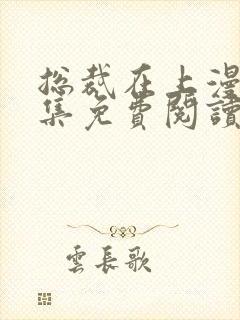 总裁在上漫
集免費閱讀
雲長歌